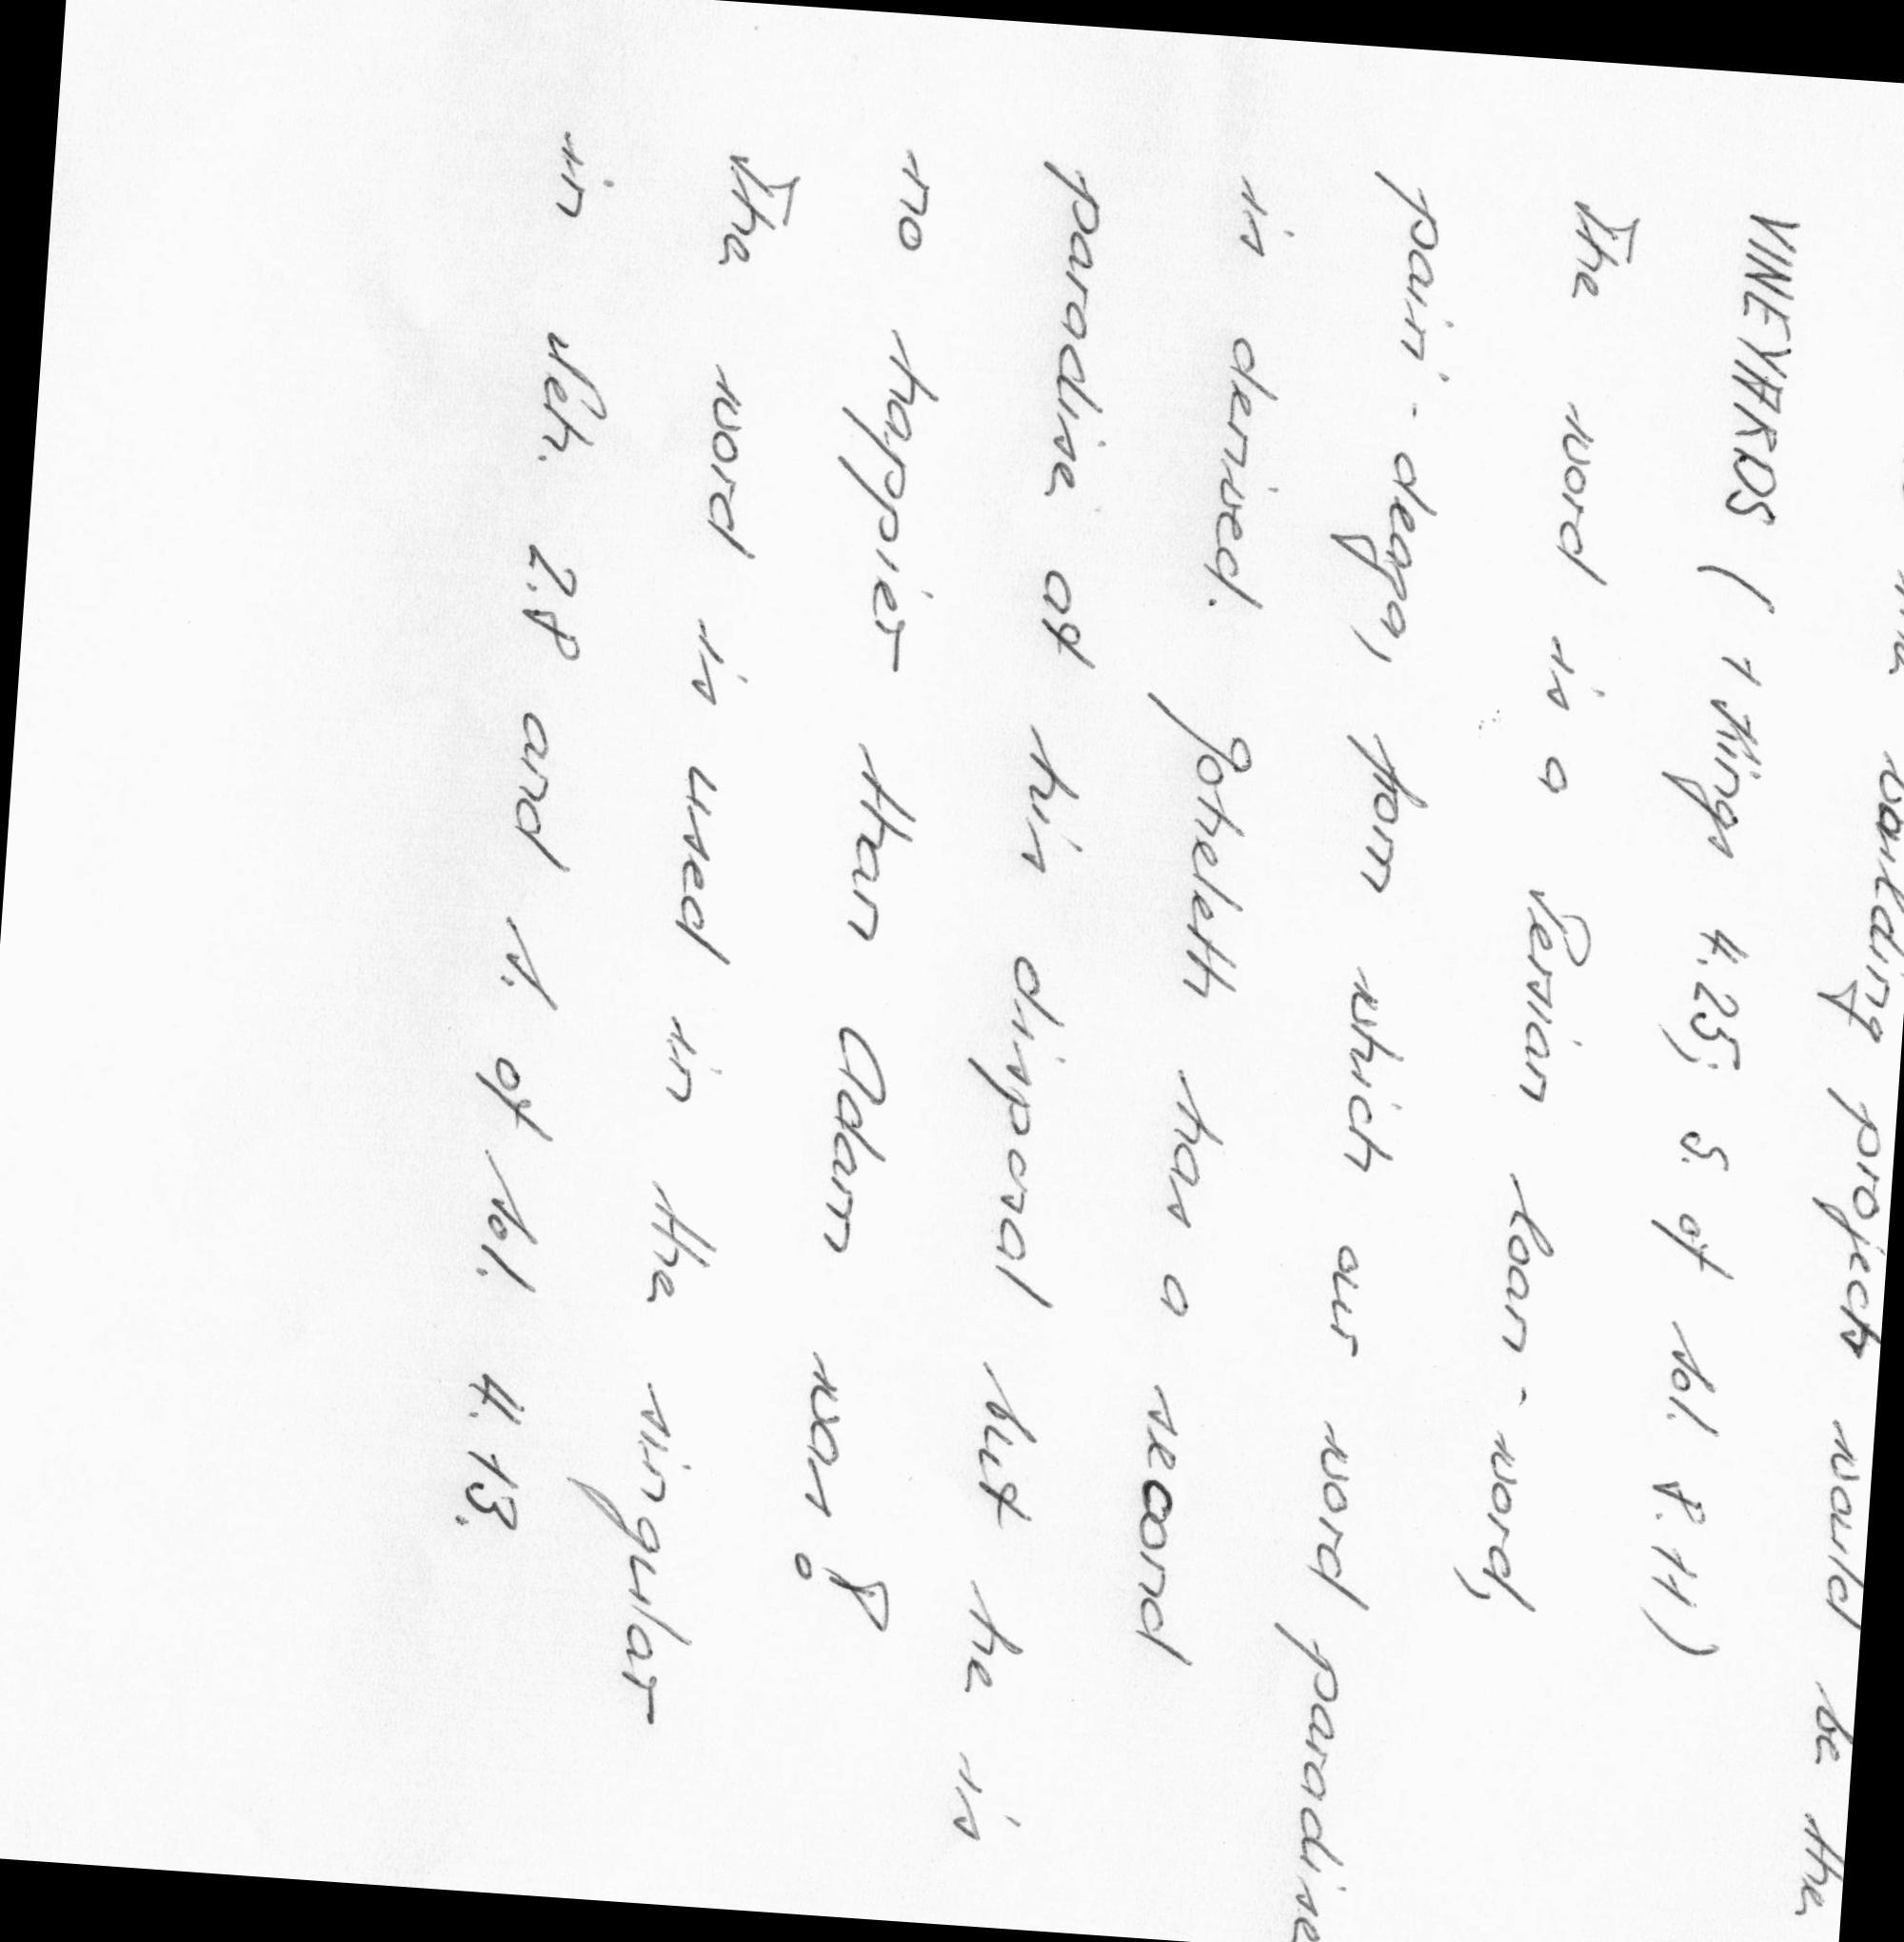 building projects would be the
VINEYARDS (1 Kings 4.25; S. of Sol. 8.11)
The word is a Persian loan-word,
pairi-deaza, fom which our word paradise
is derived. Qoheleth has a second
paradise at his disposal but he is
no happier than Adam was!
The word is used in the singular
in Neh. 2.8 and S. of Sol. 4.13.